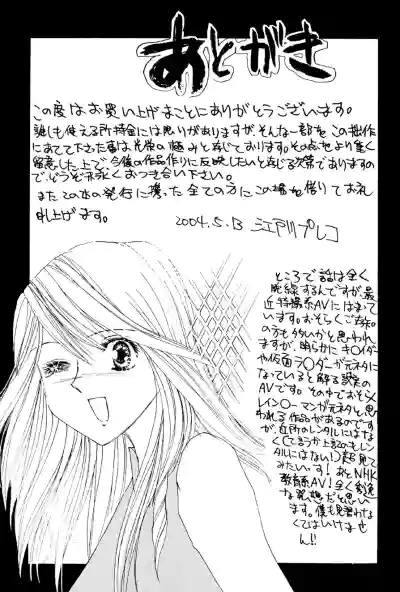 あとがき
この度はお買い上げまことにありがとうございます。
誰しも使える所持金には限りがありますが、そんな一部をこの拙作
にあてて下さった事は光栄の極みと存じております。その点をより重く
留意した上で今後の作品作りに反映したいと存じる次第でありますの
で、どうぞ末永くおつき合い下さい。
またこの本の発行に携った全ての方にこの場を借りてお礼
申し上げます。
2004.5.13
ところで話は全く
脱線するんですが、最
近特撮系AVにはまって
います。おそらくご存知
の方も多いかと思われ
ますが、明らかにキ○イダー
や仮面ラ○ダーが元ネタに
なっていると解る設定の
AVです。その中でおそらく
レイン○ーマンが元ネタと思
われる作品があるのです
が、近所のレンタルにはな
く(て言うか上記のもレン
タルにはない!)超見て
みたいっす!あとNHK
教育系AV!全く斬新
な発想だと思い
ます。僕も見習わな
くてはいけませ
ん!!